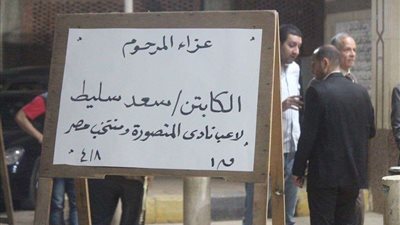 عزاء المرحوم
الكابتن/سعد سليط
لاعب نادى المنصورة ومنتخب مصر
٤/٨